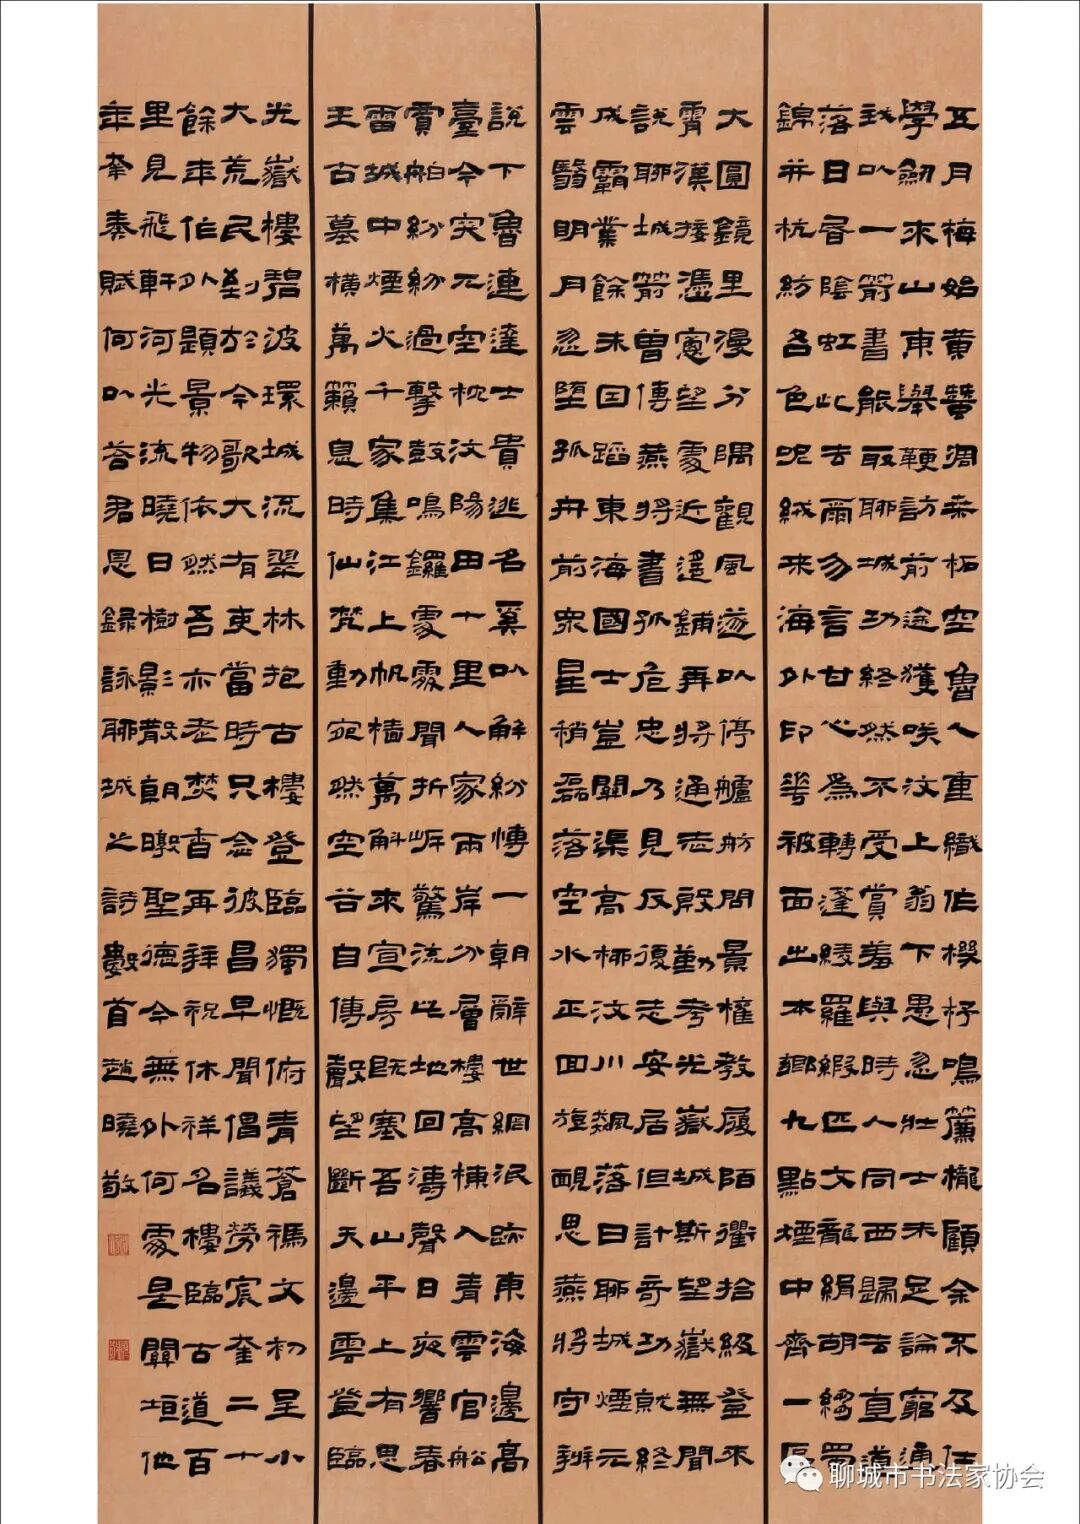 五月梅始黄蠶凋桑柘空魯人重織作機杼鳴簾櫳顧余不及仕
學劍來山東舉鞭訪前途獲笑汶上翁下愚忽壯士未足論窮通
我以一箭書能取聊城功終然不受賞羞與時人同西歸去直道
落日昏陰虹此去爾勿言甘心為轉蓬綾羅緞匹文龍絹胡縐蜀
錦并杭紡各色呢絨來海外印花被面出本鄉九點煙中齊一區
大圓鏡里漫分隅觀風遂以停艫舫問景權教履陌衢拾級登來
霄漢接憑窗望處近遥鋪再將通志殷勤考光嶽城斯望嶽無聞
說聊城箭曾傳燕將書孤危忠乃見反復志安居但計奇功就終
成霸業餘未因蹈東海國士豈關渠高柳汶川飆落日聊城煙元
雲翳明月忽墮孤舟前眾星稍磊落空水正回旋覼思燕將守辨
說下魯連達士貴逃名奚以解紛慱一朝辭世網泯跡東海邊高
臺今突兀空枕汶陽田十里人家兩岸分層樓高棟入青雲官船
賈舶紛紛過擊鼓鳴鑼處處聞折岸驚流此地回濤聲日夜響春
雷城中煙火千家集江上帆檣萬斛來宣房既塞吾山平上有思
王古墓橫萬籟息時仙梵動宛然空谷自傳聲望斷天邊雲登臨
光嶽樓碧波環城流翠林抱古樓登臨獨慨俯青蒼禑文初呈小
大荒民到於今歌大有吏當時只念彼昌早聞倡議勞宸奎二十
餘年作外題景物依然吾亦老焚香再拜祝休祥名樓臨古道百
里見飛軒河光流曉日樹影散朝暾聖德今無外何處是關垣他
年奉奏賦何以答君恩錄詠聊城之詩數首趙曉敬
聊城市书法家协会